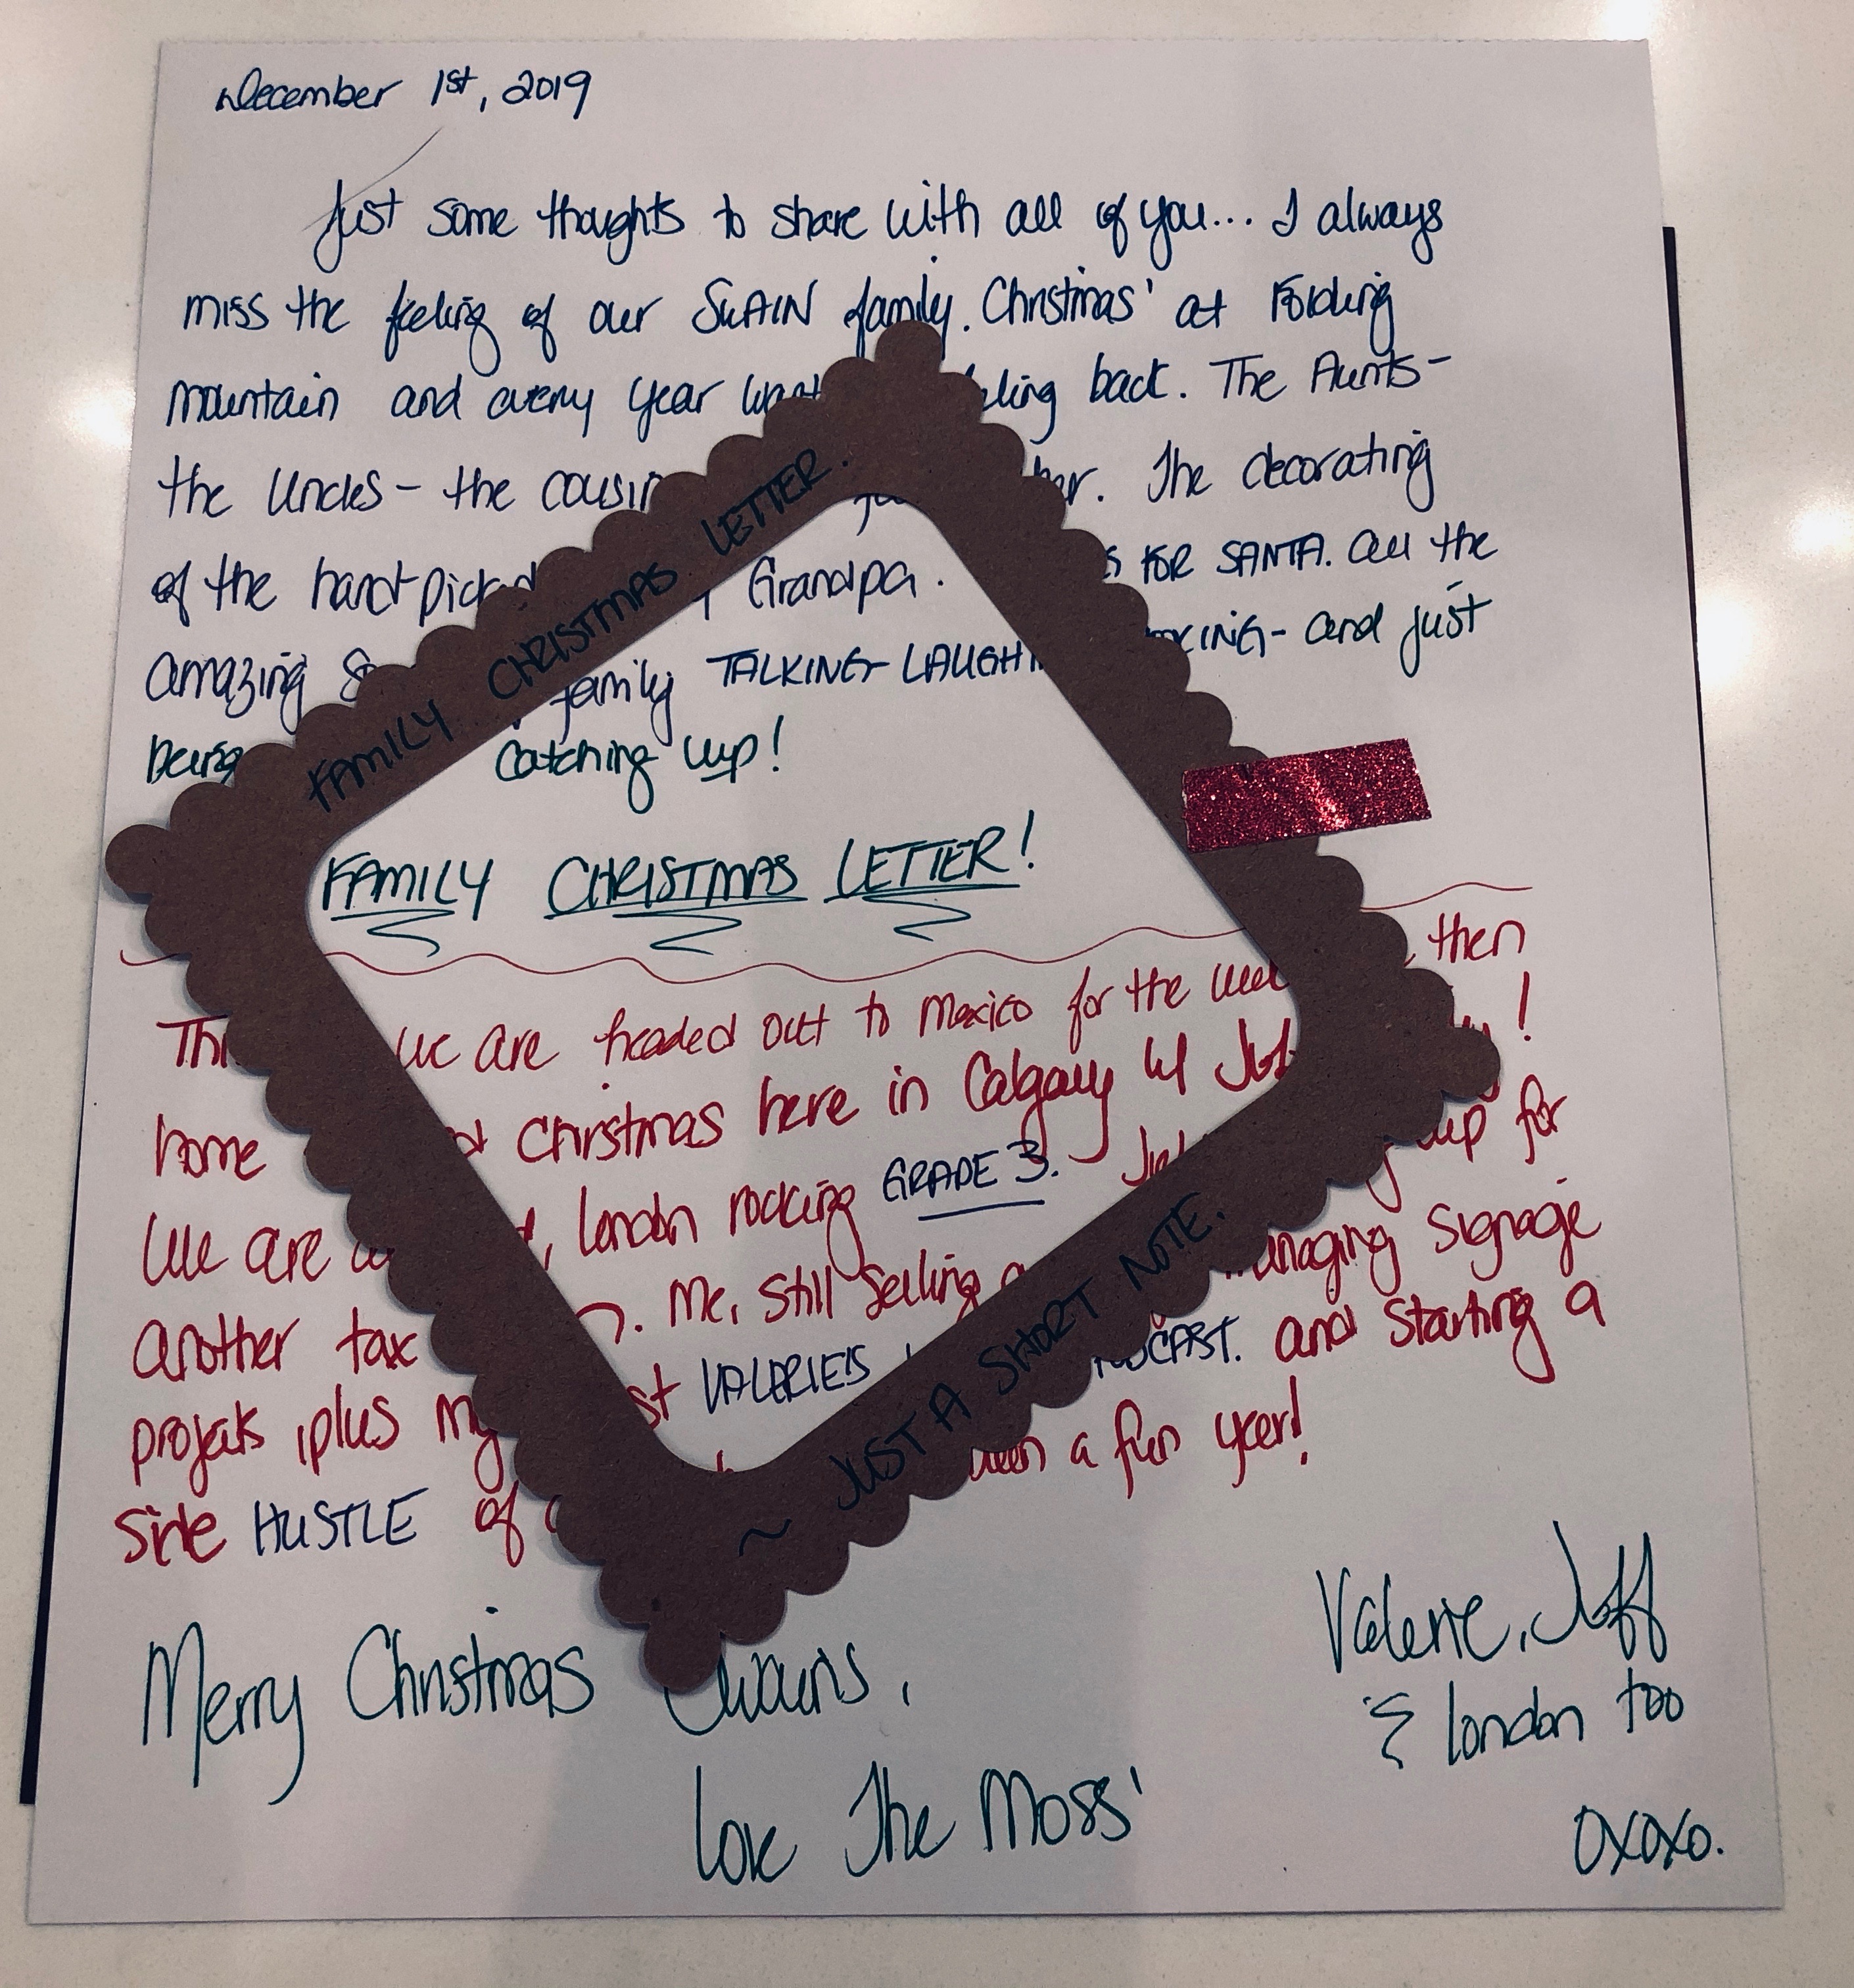 December 1st, 2019
Just some thoughts to share with all of you... I always
miss the feeling of our SWAIN family. Christmas' at Folding
mountain and every year want back. The Aunts-
the Uncles - the The decorating
of the hand picked Grandpa. FOR SANTA. All the
amazing family TALKING- LAUGHING and just
being catching up!
FAMILY CHRISTMAS LETTER!
we are headed out to Mexico for the then
home Christmas here in Calgary w/ !
We are London rocking GRADE 3. up for
Another tax Me, still selling managing signage
projects, plus my VALERIE'S PODCAST. and starting a
side HUSTLE of a fun year!
Merry Christmas Swains,
Love The Moss'
Valerie, Jeff
& London too
OXOXO.
FAMILY CHRISTMAS LETTER.
~ JUST A SHORT NOTE.